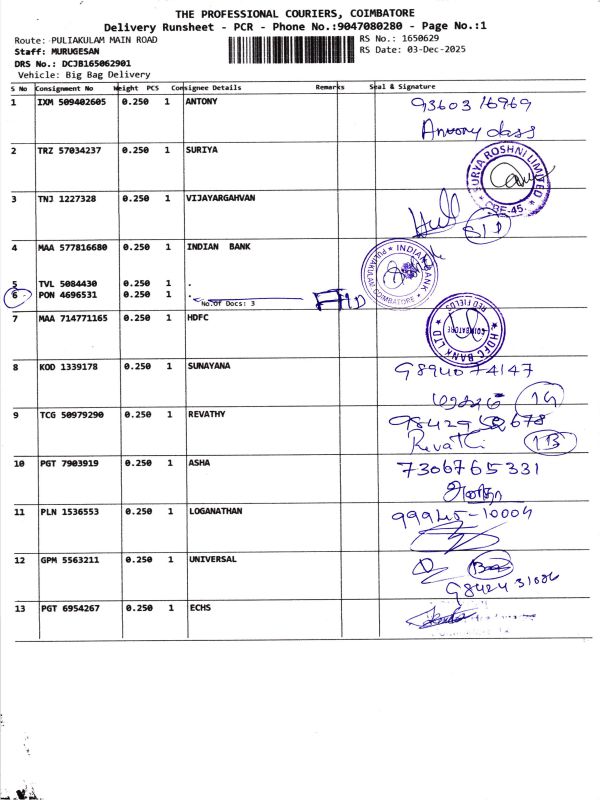 THE PROFESSIONAL COURIERS, COIMBATORE
Delivery Runsheet - PCR - Phone No.:9047080280 - Page No.:1
Route: PULIAKULAM MAIN ROAD RS No.: 1650629
Staff: MURUGESAN RS Date: 03-Dec-2025
DRS No.: DCJB165062901
Vehicle: Big Bag Delivery
S No Consignment No Weight PCS Consignee Details Remarks Seal & Signature
1 IXM 509402605 0.250 1 ANTONY 93603 16969
Antony dass
2 TRZ 57034237 0.250 1 SURIYA SURYA ROSHNI LIMITED * CBE-45. *
3 TNJ 1227328 0.250 1 VIJAYARGAHVAN
4 MAA 577816680 0.250 1 INDIAN BANK INDIAN BANK PULIAKULAM COIMBATORE
5 TVL 5084430 0.250 1 .
6 PON 4696531 0.250 1 .
No.Of Docs: 3
7 MAA 714771165 0.250 1 HDFC HDFC BANK LTD RED FIELDS COIMBATORE
8 KOD 1339178 0.250 1 SUNAYANA 98940 74147
9 TCG 50979290 0.250 1 REVATHY
Revathi 13
10 PGT 7903919 0.250 1 ASHA 7306765331
11 PLN 1536553 0.250 1 LOGANATHAN 99945-10004
12 GPM 5563211 0.250 1 UNIVERSAL
13 PGT 6954267 0.250 1 ECHS